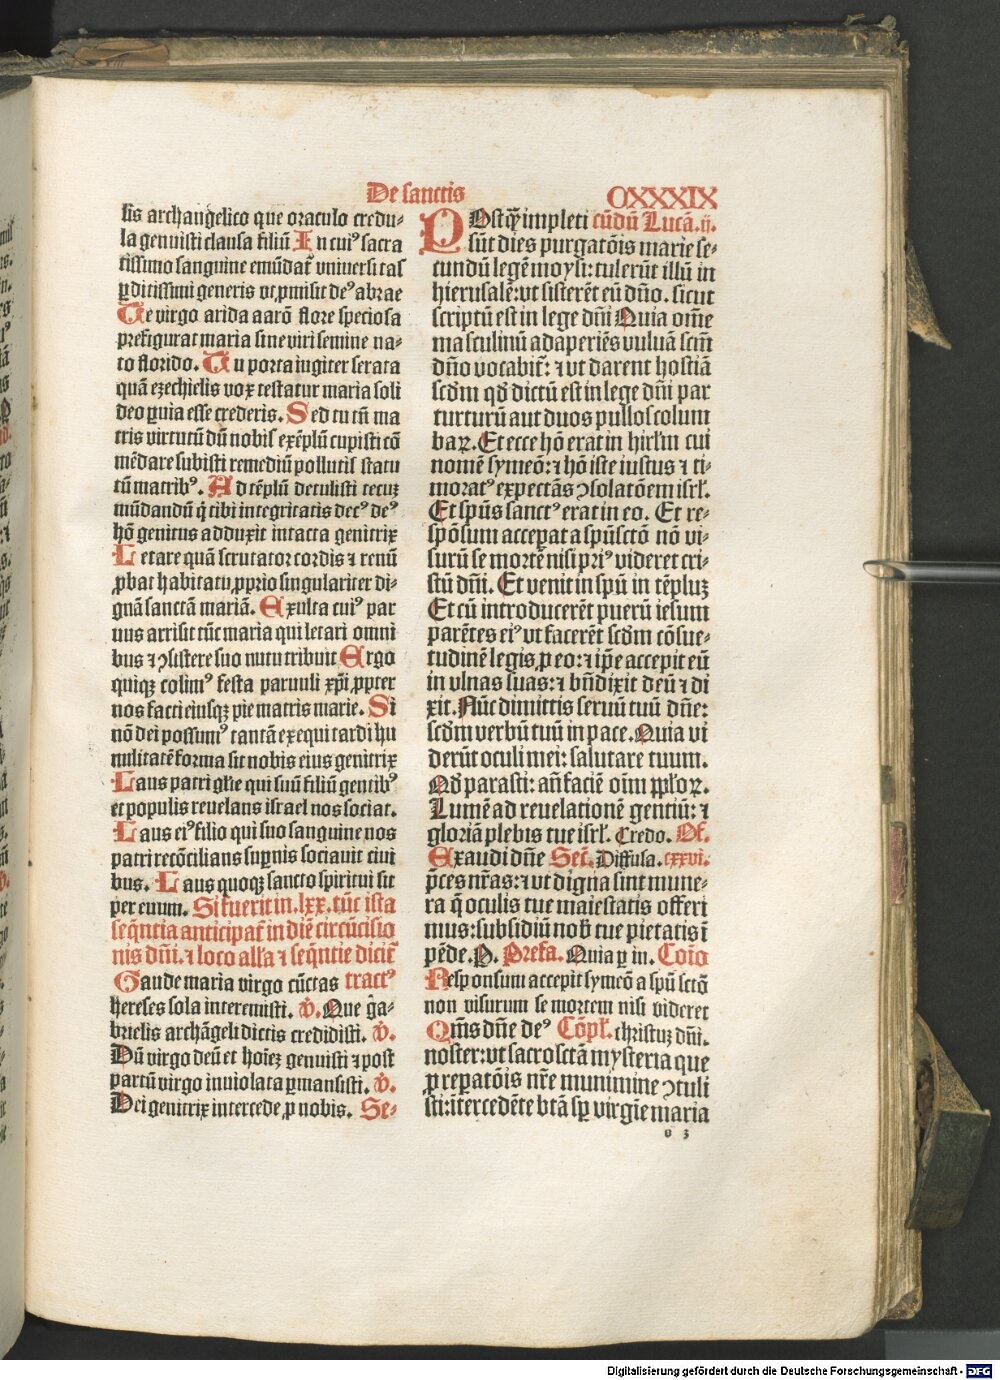 De sanctis
CXXXIX
lis archangelico que oraculo credu-
la genuisti clausa filiū In cuiꝰ sacra
tissimo sanguine emūdat᷑ vniuersitas
ꝑditissimi generis vt ꝓmisit deꝰ abrae
Te virgo arida aarō flore speciosa
prefigurat maria sine viri semine na-
to florido. Tu porta iugiter serata
quā ezechielis vox testatur maria soli
deo ꝑuia esse crederis. Sed tu tñ ma
tris virtutū dū nobis exēplū cupisti cō
mēdare subisti remediū pollutis statu
tū matribꝰ. Ad tēplū detulisti tecuꝫ
mūdandū q̇ tibi integritatis decꝰ deꝰ
hō genitus adduxit intacta genitrix
Letare quā scrutator cordis ⁊ renū
ꝓbat habitatu ꝓprio singulariter di-
gnā sanctā mariā. Exulta cuiꝰ par
uus arrisit tūc maria qui letari omni
bus ⁊ ꝯsistere suo nutu tribuit Ergo
quiqꝫ colimꝰ festa paruuli xp̄i ꝓpter
nos facti eiusqꝫ pie matris marie. Si
nō dei possumꝰ tantā exequi tardi hu
militatē forma sit nobis eius genitrix
Laus patri gl̄ie qui suū filiū gentibꝰ
et populis reuelans israel nos sociat.
Laus eiꝰ filio qui suo sanguine nos
patri recōcilians suꝑnis sociauit ciui
bus. Laus quoqꝫ sancto spiritui sit
per euum. Si fuerit in .lxx. tūc ista
seq̄ntia anticipat᷑ in diē circūcisio
nis dn̄i. ⁊ loco all'a ⁊ seq̄ntie dicit᷑
Gaude maria virgo cūctas tractꝰ
hereses sola interemisti. v̇. Que ga-
brielis archāgeli dictis credidisti. v̇.
Dū virgo deū et hoīeꝫ genuisti ⁊ post
partū virgo inuiolata ꝑmansisti. v̇.
Dei genitrix intercede ꝓ nobis. Se-
POstq̄ꝫ impleti cūdū Lucā .ij.
sūt dies purgatōis marie se-
cundū legē moysi: tulerūt illū in
hierusalē: vt sisterēt eū dn̄o. sicut
scriptū est in lege dn̄i Quia om̄e
masculinū adaperiēs vuluā sctm̄
dn̄o vocabit᷑: ⁊ vt darent hostiā
scd̄m qd̄ dictū est in lege dn̄i par
turturū aut duos pullos colum
baꝝ. Et ecce hō erat in hirl'm cui
nomē symeō: ⁊ hō iste iustus ⁊ ti-
moratꝰ expectās ꝯsolatōem isrl̄.
Et sp̄us sanctꝰ erat in eo. Et re-
spōsum acceꝑat a sp̄u sctō nō vi-
surū se mortē nisi priꝰ videret cri-
stū dn̄i. Et venit in sp̄u in tēpluꝫ
Et cū introducerēt puerū iesum
parētes eiꝰ vt facerēt scd̄m cōsue-
tudinē legis ꝓ eo: ⁊ ip̄e accepit eū
in vlnas suas: ⁊ bn̄dixit deū ⁊ di
xit. Nūc dimittis seruū tuū dn̄e:
scd̄m verbū tuū in pace. Quia vi
derūt oculi mei: salutare tuum.
Qd̄ parasti: an̄ faciē oīm pp̄loꝝ.
Lumē ad reuelationē gentiū: ⁊
gloriā plebis tue isrl̄. Credo. Of.
Exaudi dn̄e Sec̄. Diffusa. cxxvi.
p̄ces nr̄as: ⁊ vt digna sint mune-
ra q̄ oculis tue maiestatis offeri
mus: subsidiū nob̄ tue pietatis ī
pēde. P. Prefa. Quia ꝑ in. Cōio
Responsum accepit symeō a sp̄u sctō
non visurum se mortem nisi videret
Qm̄s dn̄e deꝰ Cōpl̄. christuꝫ dn̄i.
noster: vt sacrosctā mysteria que
ꝓ reꝑatōis nr̄e munimine ꝯtuli
sti: ītercedēte btā sꝑ virgīe maria
o 3
Digitalisierung gefördert durch die Deutsche Forschungsgemeinschaft - DFG